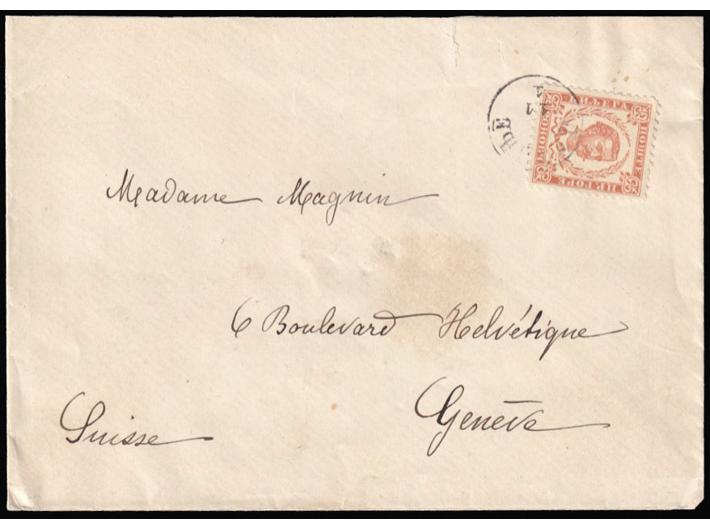 Madame Magnin
6 Boulevard Helvétique
Genève
Suisse